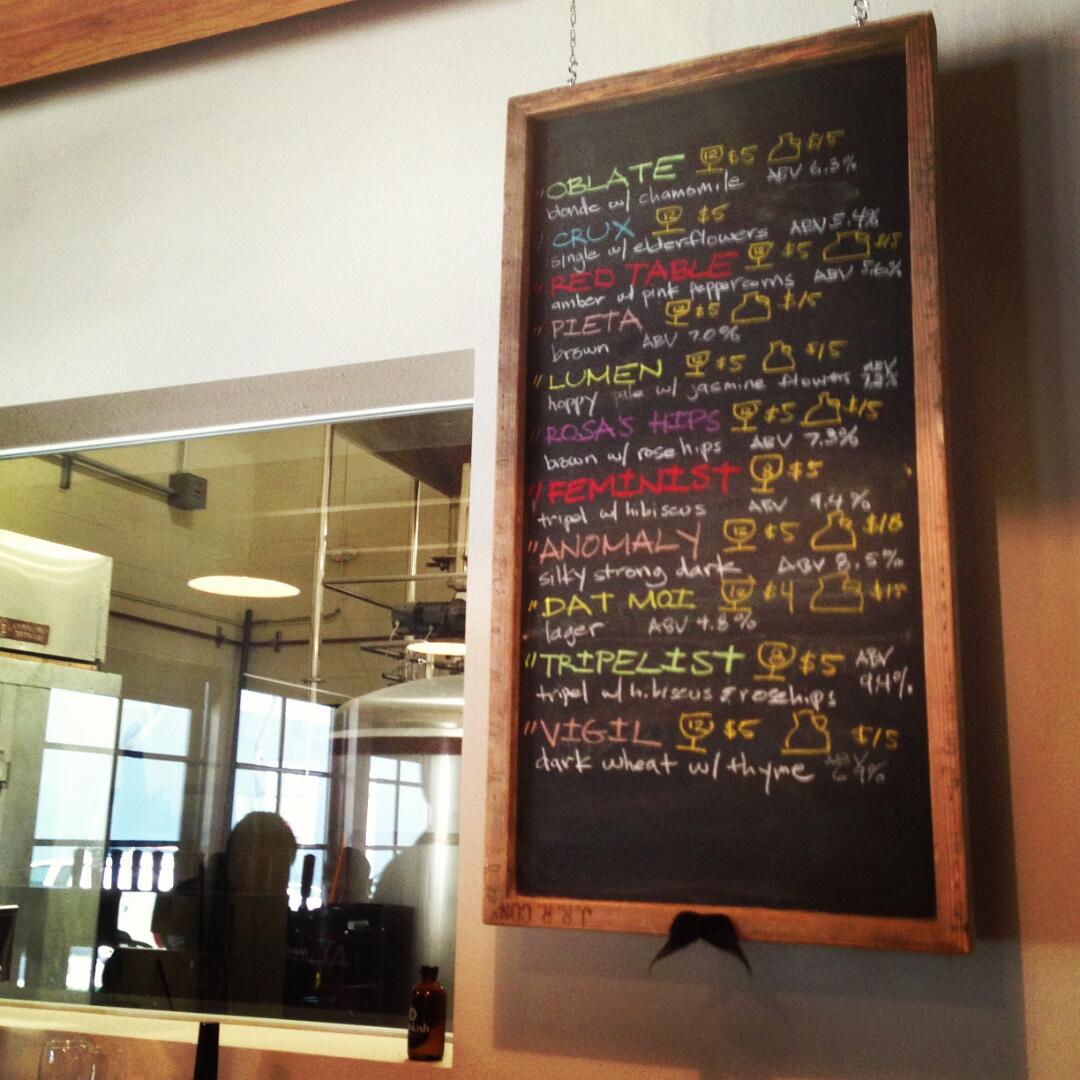 "OBLATE 12 $5 $15
blonde w/ chamomile ABV 6.3%
"CRUX 12 $5
single w/ elderflowers ABV 5.4%
"RED TABLE 12 $5 $15
amber w/ pink peppercorns ABV 5.6%
"PIETA 12 $5 $15
brown ABV 7.0%
"LUMEN 12 $5 $15
hoppy pale w/ jasmine flowers ABV
"ROSA'S HIPS 12 $5 $15
brown w/ rose hips ABV 7.3%
"FEMINIST 8 $5
tripel w/ hibiscus ABV 9.4%
"ANOMALY 12 $5 $18
silky strong dark ABV 8.5%
"DAT MOI 12 $4 $15
lager ABV 4.8%
"TRIPELIST 8 $5 ABV
tripel w/ hibiscus & rosehips 9.4%
"VIGIL 12 $5 $15
dark wheat w/ thyme ABV
J.R.R. CON